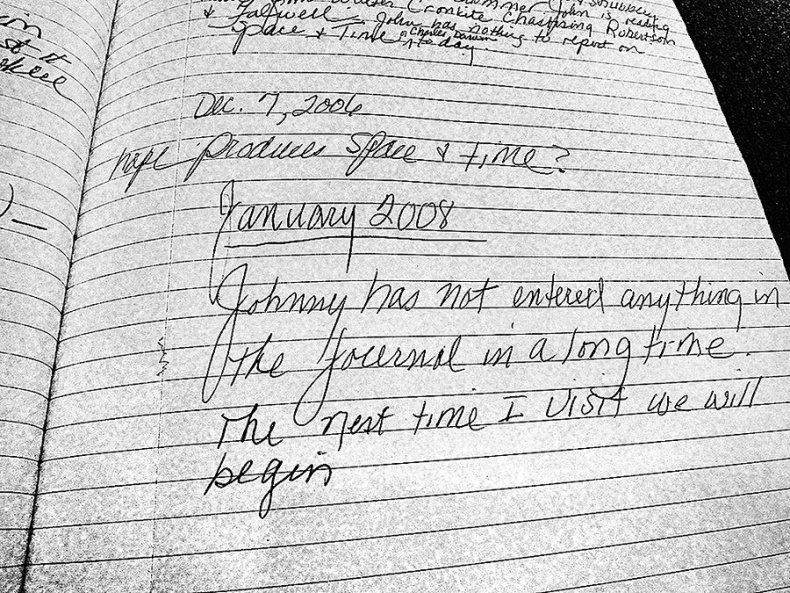 in
it
John is reading
Cronkite Chastising Robertson
& Falwell - John has nothing to report on
Space & Time Charles Darwin today
Dec. 7, 2006
hope produces Space & time?
January 2008
Johnny has not entered anything in
the journal in a long time.
The next time I visit we will
begin